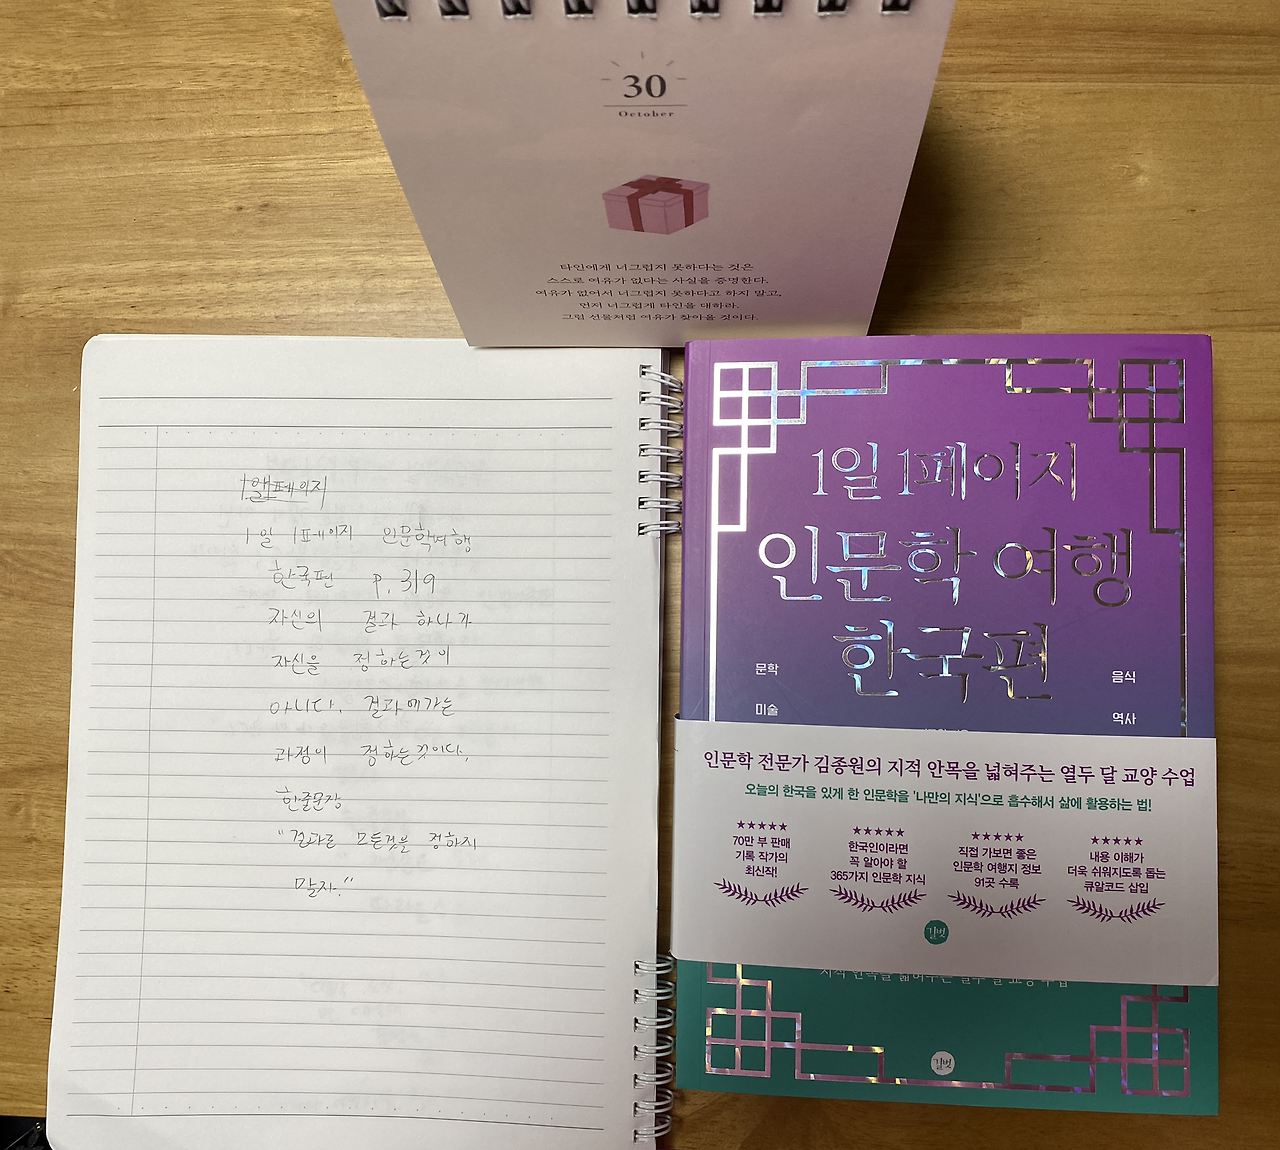 30
October
타인에게 너그럽지 못하다는 것은
스스로 여유가 없다는 사실을 증명한다.
여유가 없어서 너그럽지 못하다고 하지 말고,
먼저 너그럽게 타인을 대하라.
그럼 선물처럼 여유가 찾아올 것이다.
페이지
1일 1페이지 인문학여행
한국편 p. 319
자신의 결과 하나가
자신을 정하는것이
아니다. 결과에가는
과정이 정하는것이다.
한줄문장
"결과로 모든것을 정하지
말자."
1일 1페이지
인문학 여행
한국편
문학
음식
미술
역사
인문학 전문가 김종원의 지적 안목을 넓혀주는 열두 달 교양 수업
오늘의 한국을 있게 한 인문학을 '나만의 지식'으로 흡수해서 삶에 활용하는 법!
★★★★★
70만 부 판매
기록 작가의
최신작!
★★★★★
한국인이라면
꼭 알아야 할
365가지 인문학 지식
★★★★★
직접 가보면 좋은
인문학 여행지 정보
91곳 수록
★★★★★
내용 이해가
더욱 쉬워지도록 돕는
큐알코드 삽입
길벗
지적 안목을 넓혀주는 열두 달 교양 수업
길벗